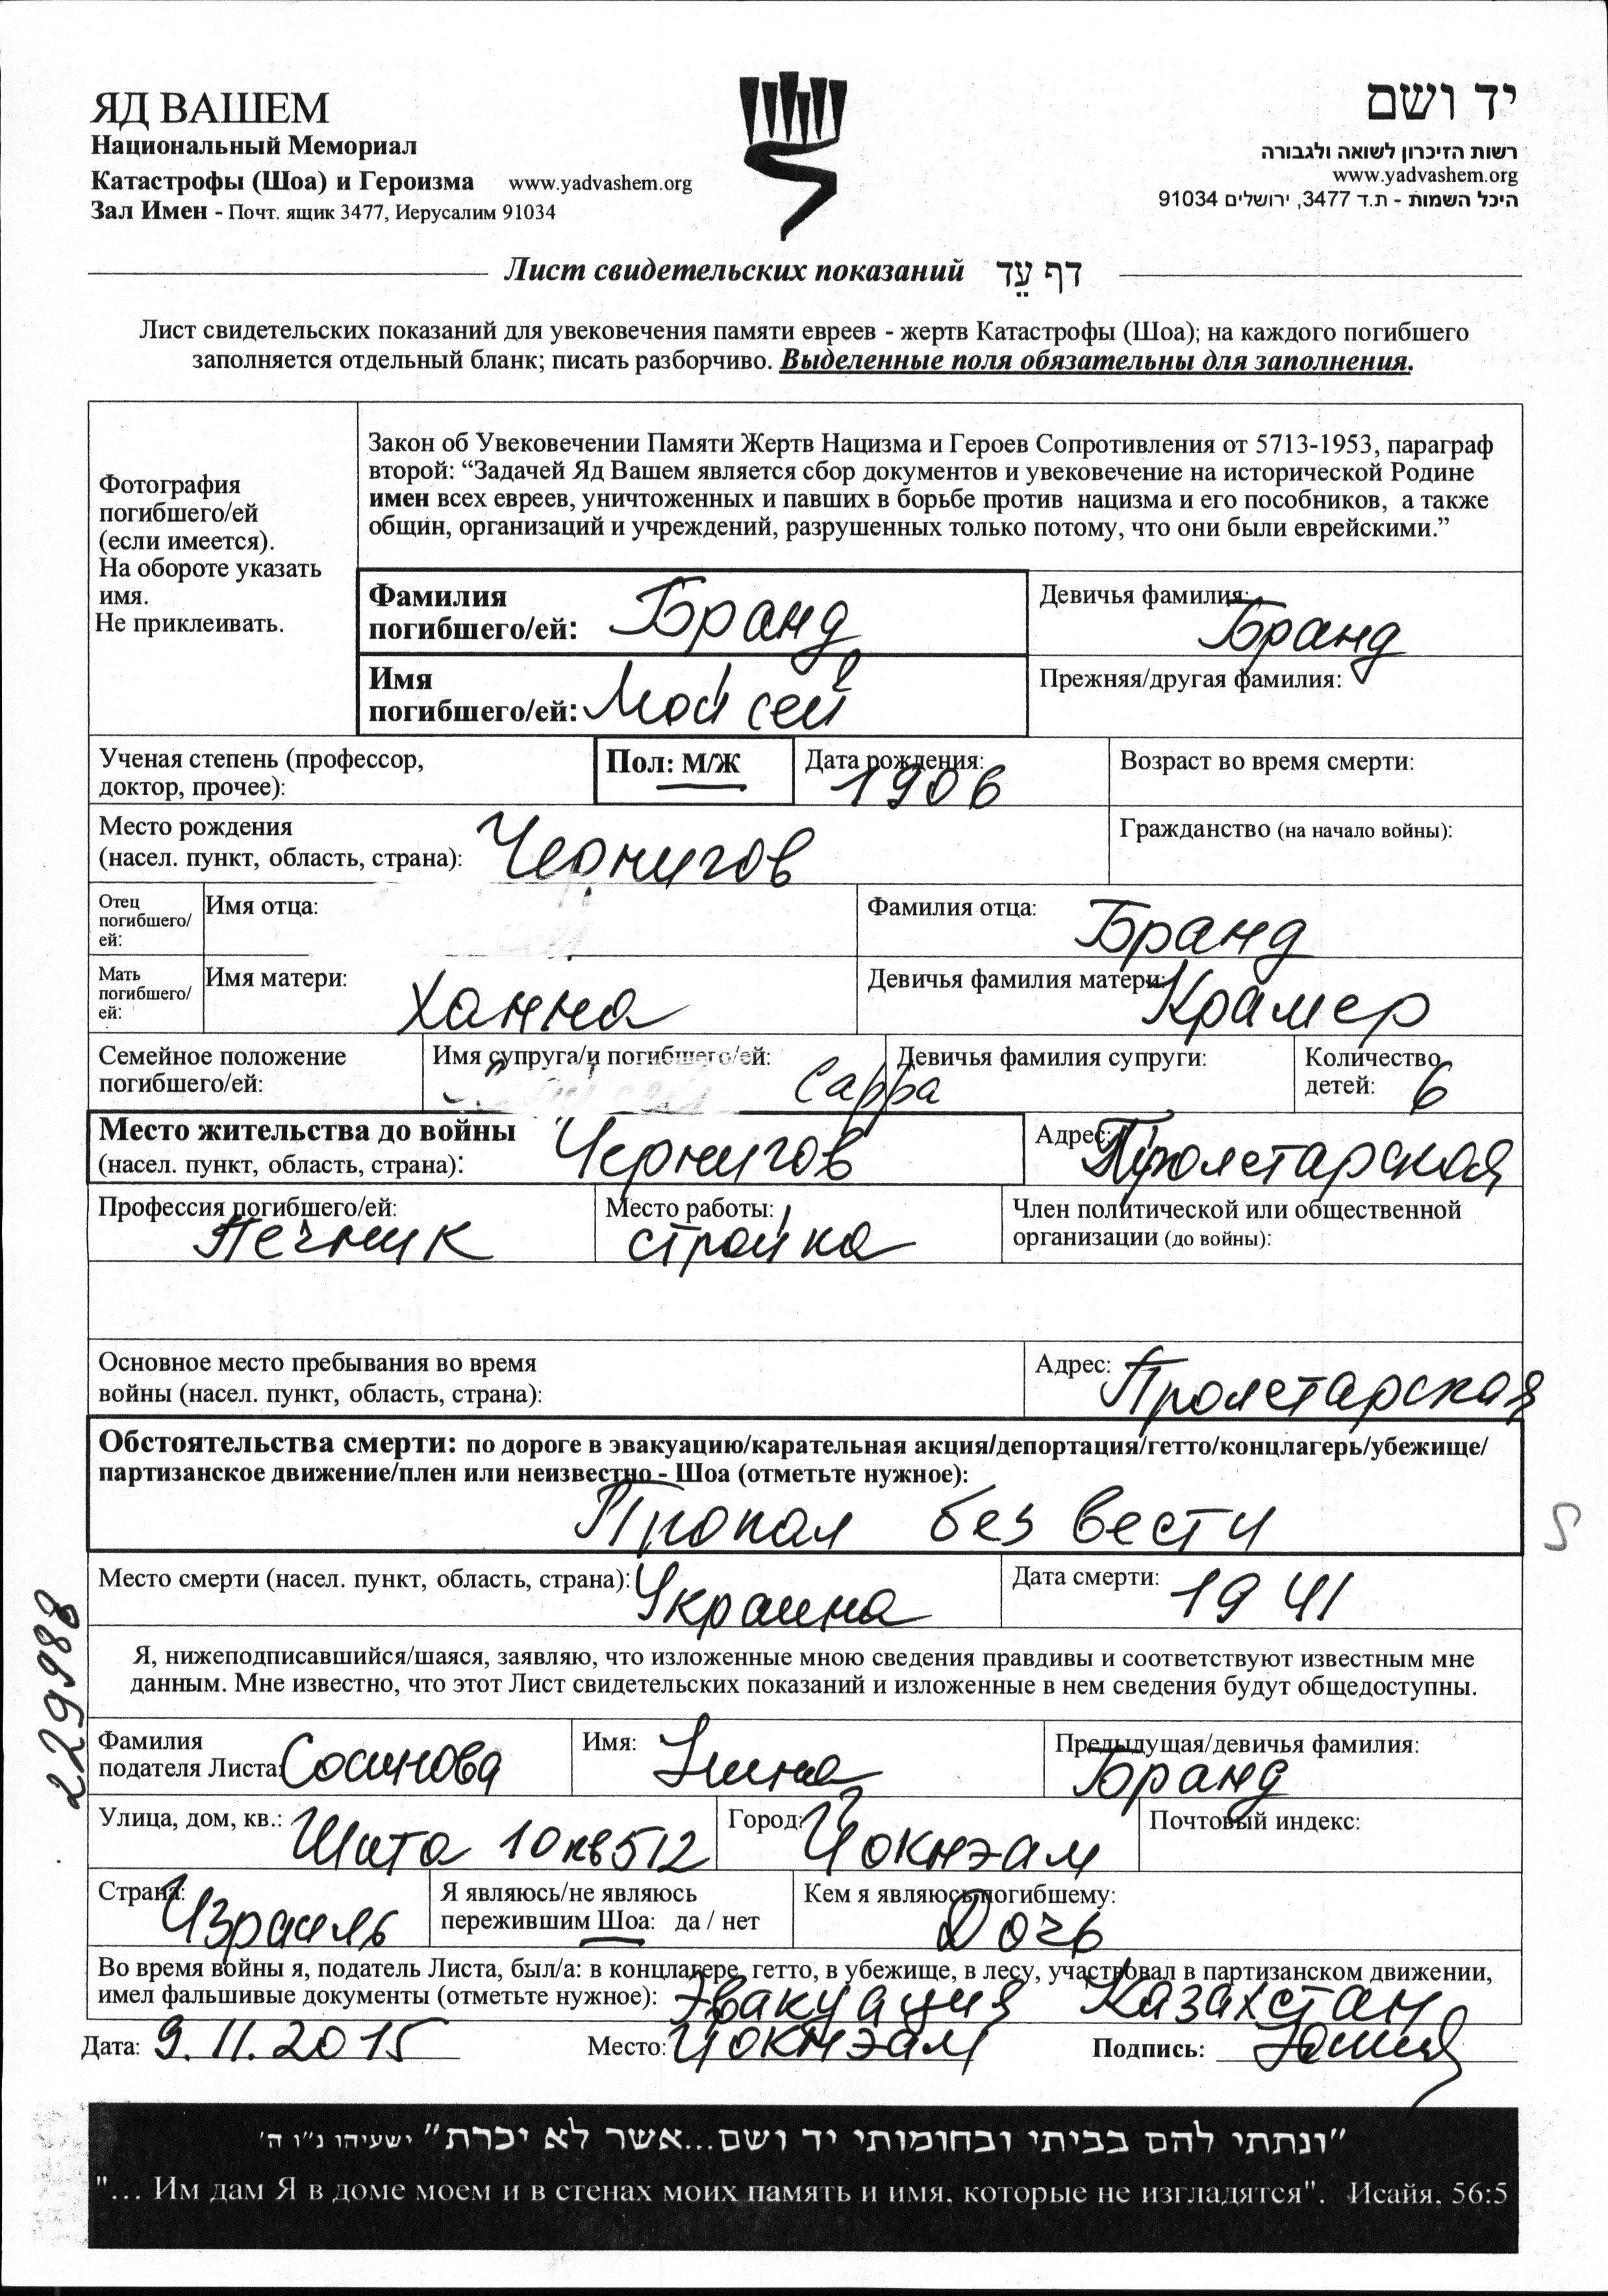 ЯД ВАШЕМ
Национальный Мемориал
Катастрофы (Шоа) и Героизма www.yadvashem.org
Зал Имен - Почт. ящик 3477, Иерусалим 91034
יד ושם
רשות הזיכרון לשואה ולגבורה
www.yadvashem.org
היכל השמות - ת.ד 3477, ירושלים 91034
Лист свидетельских показаний דף עֵד
Лист свидетельских показаний для увековечения памяти евреев - жертв Катастрофы (Шоа); на каждого погибшего
заполняется отдельный бланк; писать разборчиво. Выделенные поля обязательны для заполнения.
Фотография
погибшего/ей
(если имеется).
На обороте указать
имя.
Не приклеивать.
Закон об Увековечении Памяти Жертв Нацизма и Героев Сопротивления от 5713-1953, параграф
второй: “Задачей Яд Вашем является сбор документов и увековечение на исторической Родине
имен всех евреев, уничтоженных и павших в борьбе против нацизма и его пособников, а также
общин, организаций и учреждений, разрушенных только потому, что они были еврейскими.”
Фамилия
погибшего/ей: Бранд
Девичья фамилия:
Бранд
Имя
погибшего/ей: Мойсей
Прежняя/другая фамилия:
Ученая степень (профессор,
доктор, прочее):
Пол: М/Ж
Дата рождения:
1906
Возраст во время смерти:
Место рождения
(насел. пункт, область, страна): Чернигов
Гражданство (на начало войны):
Отец
погибшего/
ей:
Имя отца:
Фамилия отца: Бранд
Мать
погибшего/
ей:
Имя матери: Ханна
Девичья фамилия матери: Крамер
Семейное положение
погибшего/ей:
Имя супруга/и погибшего/ей:
Сарра
Девичья фамилия супруги:
Количество
детей: 6
Место жительства до войны
(насел. пункт, область, страна): Чернигов
Адрес: Пролетарская
Профессия погибшего/ей:
Печник
Место работы:
стройка
Член политической или общественной
организации (до войны):
Основное место пребывания во время
войны (насел. пункт, область, страна):
Адрес: Пролетарская
Обстоятельства смерти: по дороге в эвакуацию/карательная акция/депортация/гетто/концлагерь/убежище/
партизанское движение/плен или неизвестно - Шоа (отметьте нужное):
Пропал без вести
S
Место смерти (насел. пункт, область, страна): Украина
Дата смерти: 1941
229988
Я, нижеподписавшийся/шаяся, заявляю, что изложенные мною сведения правдивы и соответствуют известным мне
данным. Мне известно, что этот Лист свидетельских показаний и изложенные в нем сведения будут общедоступны.
Фамилия
подателя Листа: Сосинова
Имя: Нина
Предыдущая/девичья фамилия:
Бранд
Улица, дом, кв.: Шита 10 кв 512
Город: Йокнэам
Почтовый индекс:
Страна: Израиль
Я являюсь/не являюсь
пережившим Шоа: да / нет
Кем я являюсь погибшему:
Дочь
Во время войны я, податель Листа, был/а: в концлагере, гетто, в убежище, в лесу, участвовал в партизанском движении,
имел фальшивые документы (отметьте нужное): Эвакуация Казахстан
Дата: 9.11.2015 Место: Йокнэам Подпись:
"ונתתי להם בביתי ובחומותי יד ושם...אשר לא יכרת" ישעיהו נ"ו ה'
"... Им дам Я в доме моем и в стенах моих память и имя, которые не изгладятся". Исайя, 56:5